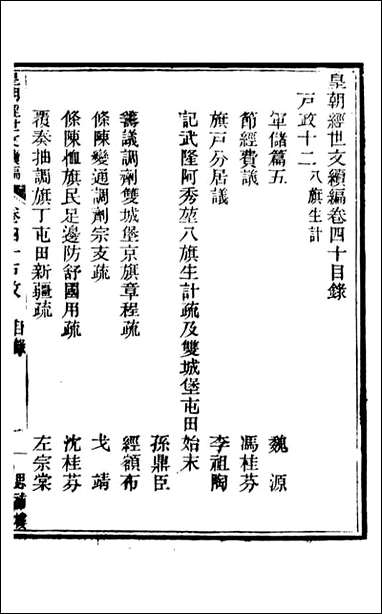 皇朝經世文續編卷四十目錄
戶政十二 八旗生計
軍儲篇五 魏源
節經費議 馮桂芬
旗戶分居議 李祖陶
記武隆阿秀堃八旗生計疏及雙城堡屯田始末
孫鼎臣
籌議調劑雙城堡京旗章程疏 經額布
條陳變通調劑宗支疏 戈靖
條陳恤旗民足邊防舒國用疏 沈桂芬
覆奏抽調旗丁屯田新疆疏 左宗棠
皇朝經世文續編 卷四十 戶政 目錄 一 思補樓